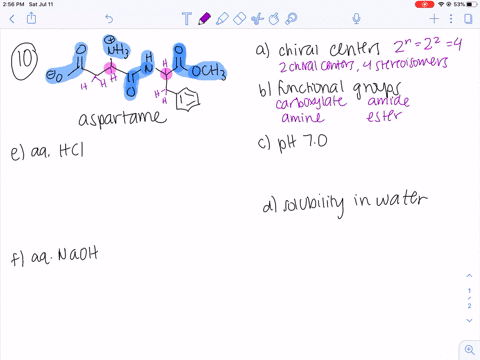 2:56 PM Sat Jul 11
53%
10
O
NH3
O
H
N
H
O
OCH3
H
H
H
O
H
H
aspartame
a) chiral centers 2^n = 2^2 = 4
2 chiral centers, 4 stereoisomers
b) functional groups
carboxylate amide
amine ester
c) pH 7.0
d) solubility in water
e) aq. HCl
f) aq. NaOH
1
/
2